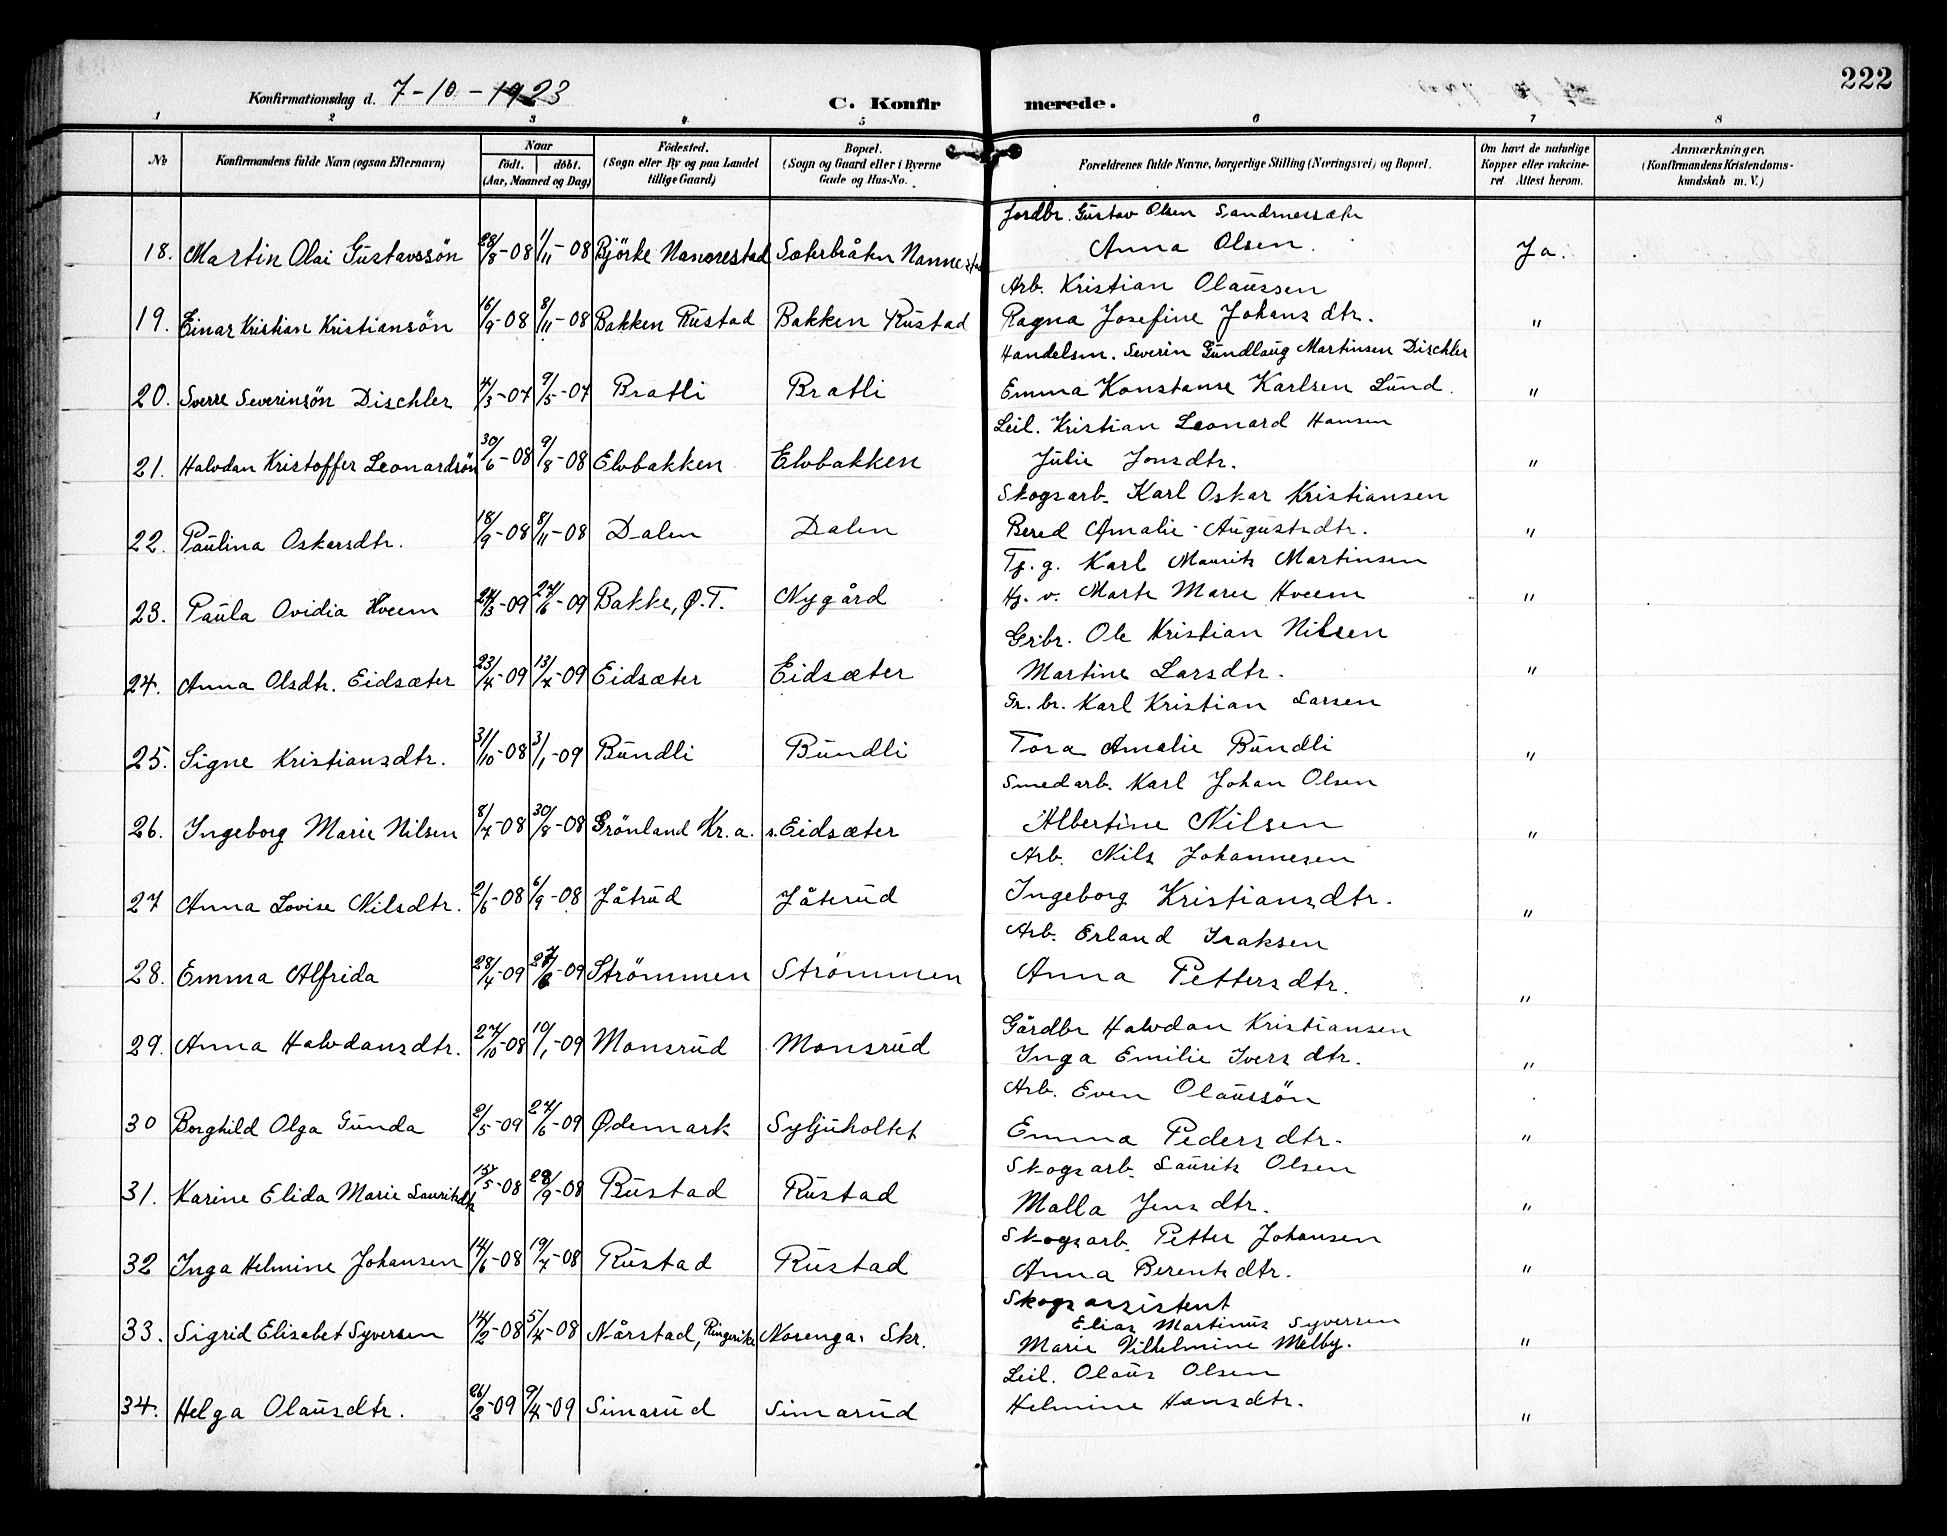 Konfirmationsdag d. 7-10-1923
C. Konfirmerede.
222
1 2 3 4 5 6 7 8
No
Konfirmandens fulde Navn (ogsaa Efternavn)
Naar
født. døbt.
(Aar, Maaned og Dag)
Fødested.
(Sogn eller By og paa Landet
tillige Gaard)
Bopæl.
(Sogn og Gaard eller i Byerne
Gade og Hus-No.
Forældrenes fulde Navne, borgerlige Stilling (Næringsvei) og Bopæl.
Om havt de naturlige
Kopper eller vakcine-
ret Attest herom.
Anmærkninger.
(Konfirmandens Kristendoms-
kundskab m. V.)
Jordbr. Gustav Olsen Sandmessæter
18. Martin Olai Gustavssön 28/8-08 1/11-08 Björke Nannestad Sæterbråten Nannestad Anna Olsen. Ja.
Arb. Kristian Olaussen
19. Einar Kristian Kristiansön 16/9-08 8/11-08 Bakken Rustad Bakken Rustad Ragna Josefine Johansdtr. "
Handelsm. Severin Gundlaug Martinsen Dischler
20. Sverre Severinsön Dischler 4/3-07 9/5-07 Bratli Bratli Emma Konstanse Karlsen Lund. "
Leil. Kristian Leonard Hansen
21. Halvdan Kristoffer Leonardsön 30/6-08 9/8-08 Elvbakken Elvbakken Julie Jonsdtr. "
Skogsarb. Karl Oskar Kristiansen
22. Paulina Oskarsdtr. 18/9-08 8/11-08 Dalen Dalen Bered Amalie Augustsdtr. "
Tj. g. Karl Maurits Martinsen
23. Paula Ovidia Hveem 24/3-09 27/6-09 Bakke, Ø.T. Nygård Hj. v. Marte Marie Hveem "
Grbr. Ole Kristian Nilsen
24. Anna Olsdtr. Eidsæter 23/4-09 13/7-09 Eidsæter Eidsæter Martine Larsdtr. "
Gr. br. Karl Kristian Larsen
25. Signe Kristiansdtr. 31/10-08 3/1-09 Bundli Bundli Tora Amalie Bundli "
Smedarb. Karl Johan Olsen
26. Ingeborg Marie Nilsen 8/7-08 30/8-08 Grönland Kr.a. s. Eidsæter Albertine Nilsen "
Arb. Nils Johannesen
27 Anna Lovise Nilsdtr. 2/6-08 6/9-08 Jåtrud Jåterud Ingeborg Kristiansdtr. "
Arb. Erland Isaksen
28. Emma Alfrida 28/4-09 27/6-09 Strömmen Strömmen Anna Pettersdtr. "
Gårdbr Halvdan Kristiansen
29. Anna Halvdansdtr. 27/10-08 10/1-09 Monsrud Monsrud Inga Emilie Iversdtr. "
Arb. Even Olaussön
30 Borghild Olga Gunda 2/5-09 27/6-09 Ødemark Syljuholtet Emma Pedersdtr. "
Skogsarb. Laurits Olsen
31. Karine Elida Marie Lauritsdtr 15/5-08 28/9-08 Rustad Rustad Malla Jensdtr. "
Skogsarb. Petter Johansen
32 Inga Helmine Johansen 14/6-08 19/7-08 Rustad Rustad Anna Berentsdtr. "
Skogsassistent
Elias Martinus Syversen
33. Sigrid Elisabet Syversen 14/2-08 5/4-08 Nårstad, Ringerike Norenga. Skr. Marie Vilhelmine Melby. "
Leil. Olaus Olsen
34. Helga Olausdtr. 26/2-09 9/4-09 Simarud Simarud Helmine Hansdtr. "